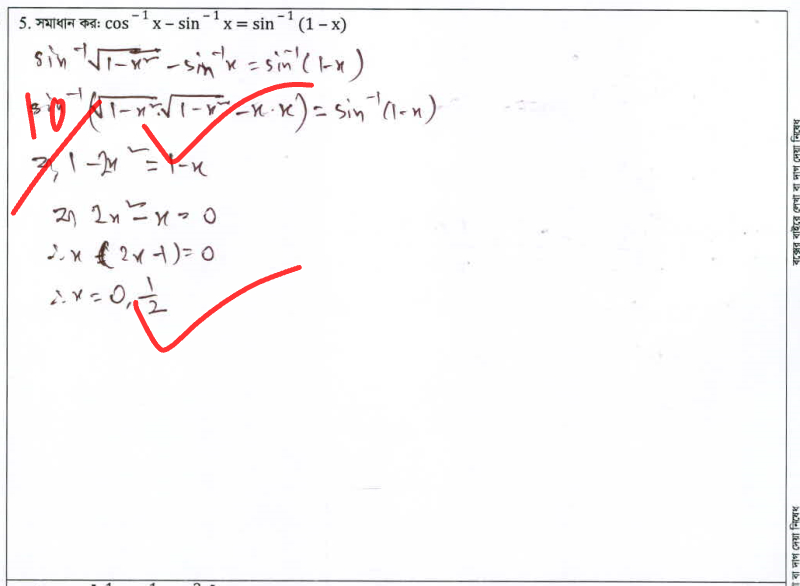 5. সমাধান কর: cos⁻¹ x – sin⁻¹ x = sin⁻¹ (1 – x)
sin⁻¹√(1-x²) - sin⁻¹x = sin⁻¹(1-x)
sin⁻¹(√(1-x²)·√(1-x²) - x·x) = sin⁻¹(1-x)
10
বা, 1-2x² = 1-x
বা 2x² - x = 0
∴ x (2x-1) = 0
∴ x = 0, 1/2
বক্সের বাইরে লেখা বা দাগ দেয়া নিষেধ
বা দাগ দেয়া নিষেধ